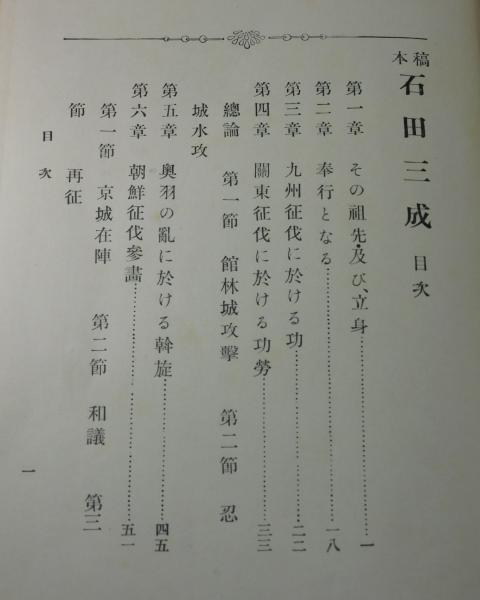 稿本 石田三成 目次
第一章 その祖先及び、立身……一
第二章 奉行となる……一八
第三章 九州征伐に於ける功……二二
第四章 關東征伐に於ける功勞……三三
總論 第一節 館林城攻擊 第二節 忍
城水攻
第五章 奥羽の亂に於ける斡旋……四五
第六章 朝鮮征伐參畫……五一
第一節 京城在陣 第二節 和議 第三
節 再征
目次 一